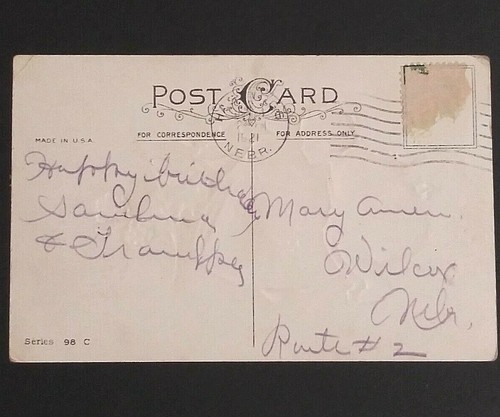 POST CARD
1921
NEBR.
MADE IN U.S.A.
FOR CORRESPONDENCE
FOR ADDRESS ONLY
Happy birthday
&
Mary
Wilcox
Nebr.
Route # 2
Series 98 C